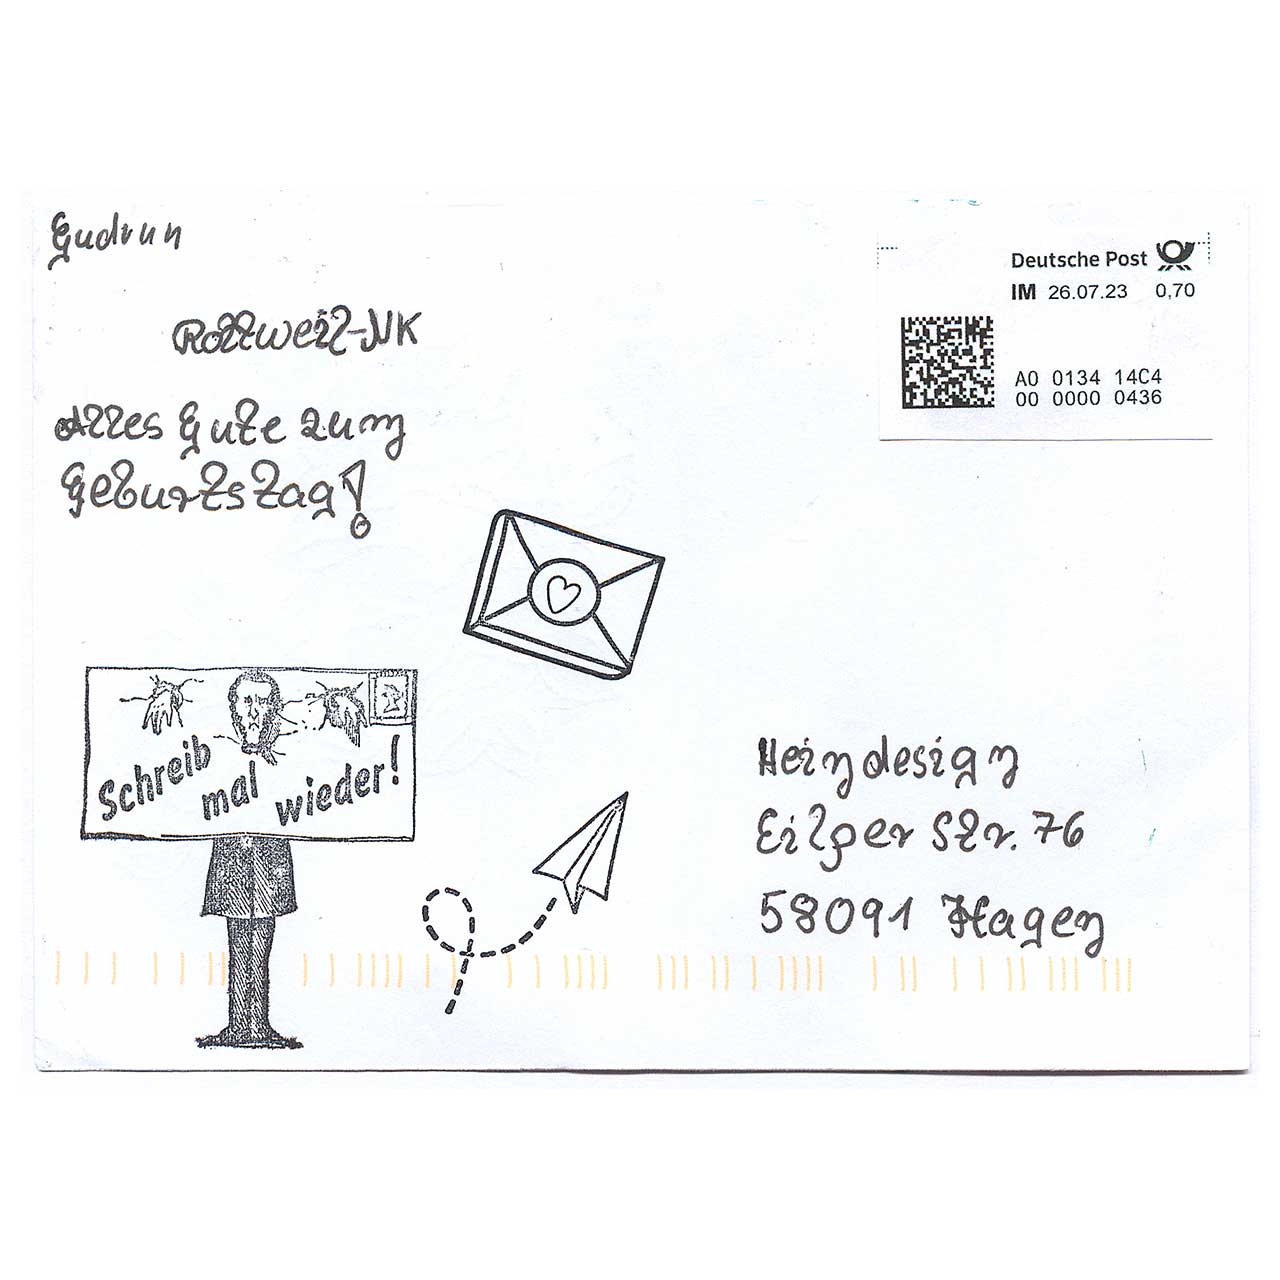 Gudrun
Rottweil-NK
Alles Gute zum
Geburtstag!
Deutsche Post
IM 26.07.23 0,70
A0 0134 14C4
00 0000 0436
Schreib
mal
wieder!
Heindesign
Eilper Str. 76
58091 Hagen